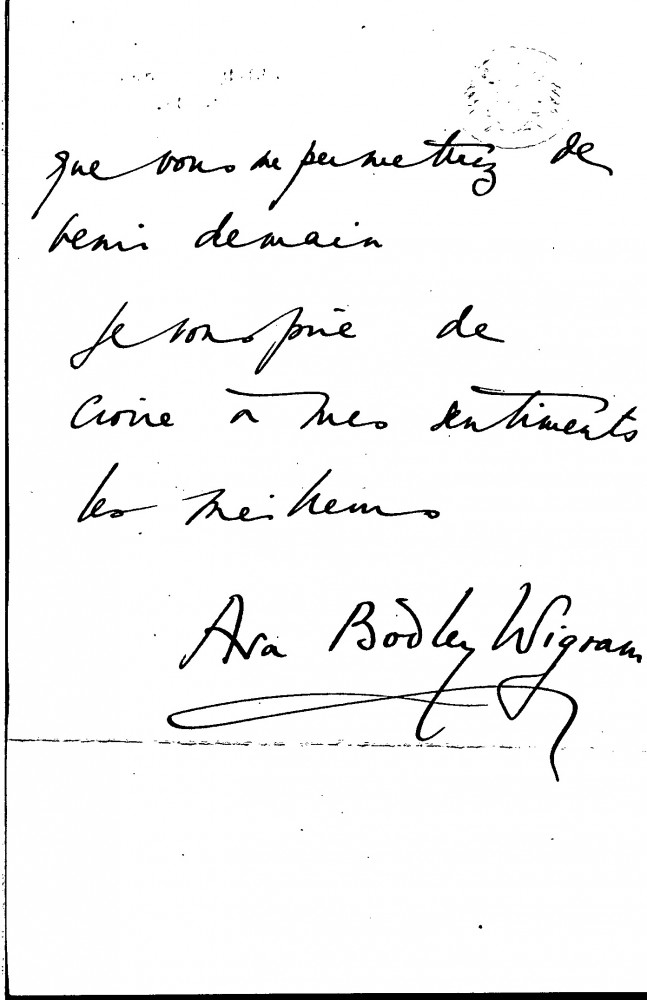 que vous me permettrez de
venir demain
Je vous prie de
croire à mes sentiments
les meilleurs
Ava Bodley Wigram